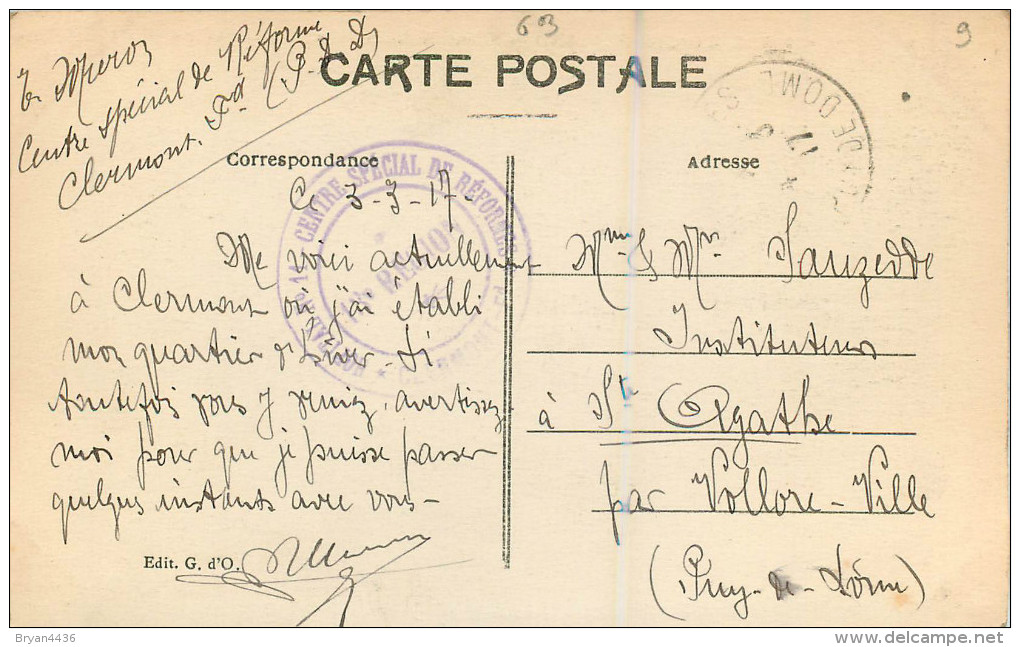 603
9
Centre spécial de Réforme
Clermont. Fd (P. de D)
CARTE POSTALE
Correspondance
Adresse
CENTRE SPÉCIAL DE RÉFORME
DE DOME
17
C. 3-3-17-
Me voici actuellement
à Clermont où j'ai établi
mon quartier d'hiver. Si
toutefois vous y veniez, avertissez-
moi pour que je puisse passer
quelques instants avec vous-
Edit. G. d'O.
Mme & Mr Sauzedde
Instituteurs
à Ste Agathe
par Vollore-Ville
(Puy-de-Dôme)
Bryan4436
delcampe.net